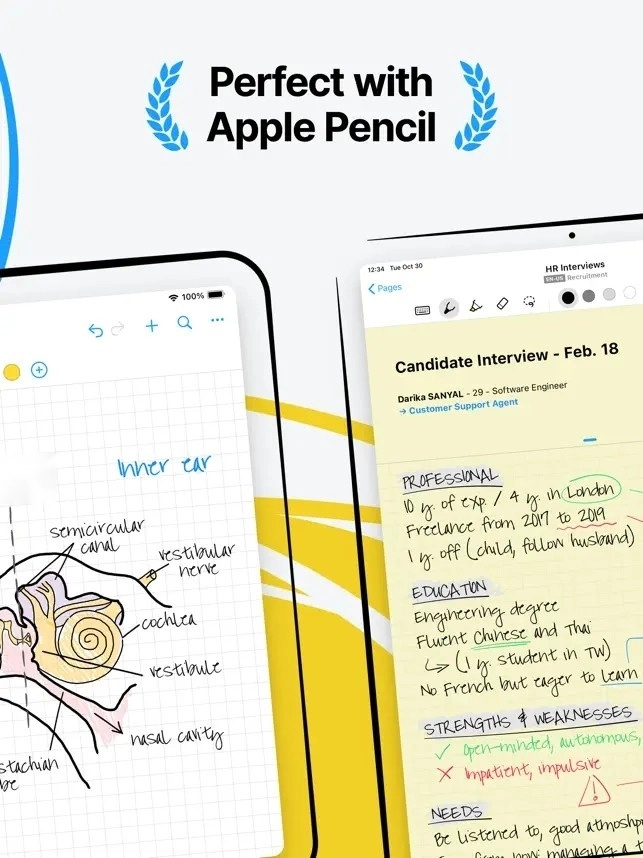 Perfect with
Apple Pencil
100%
Inner ear
semicircular
canal
vestibular
nerve
cochlea
vestibule
nasal cavity
12:34 Tue Oct 30
HR Interviews
EN-US Recruitment
Pages
Candidate Interview - Feb. 18
Darika SANYAL - 29 - Software Engineer
→ Customer Support Agent
PROFESSIONAL
10 y. of exp. / 4 y. in London
Freelance from 2017 to 2019
1 y. off (child, follow husband)
EDUCATION
Engineering degree
Fluent Chinese and Thai
(1 y. student in TW)
No French but eager to learn
STRENGTHS & WEAKNESSES
✓ Open-minded, autonomous,
✗ Impatient, impulsive
NEEDS
Be listened to, good
managing a